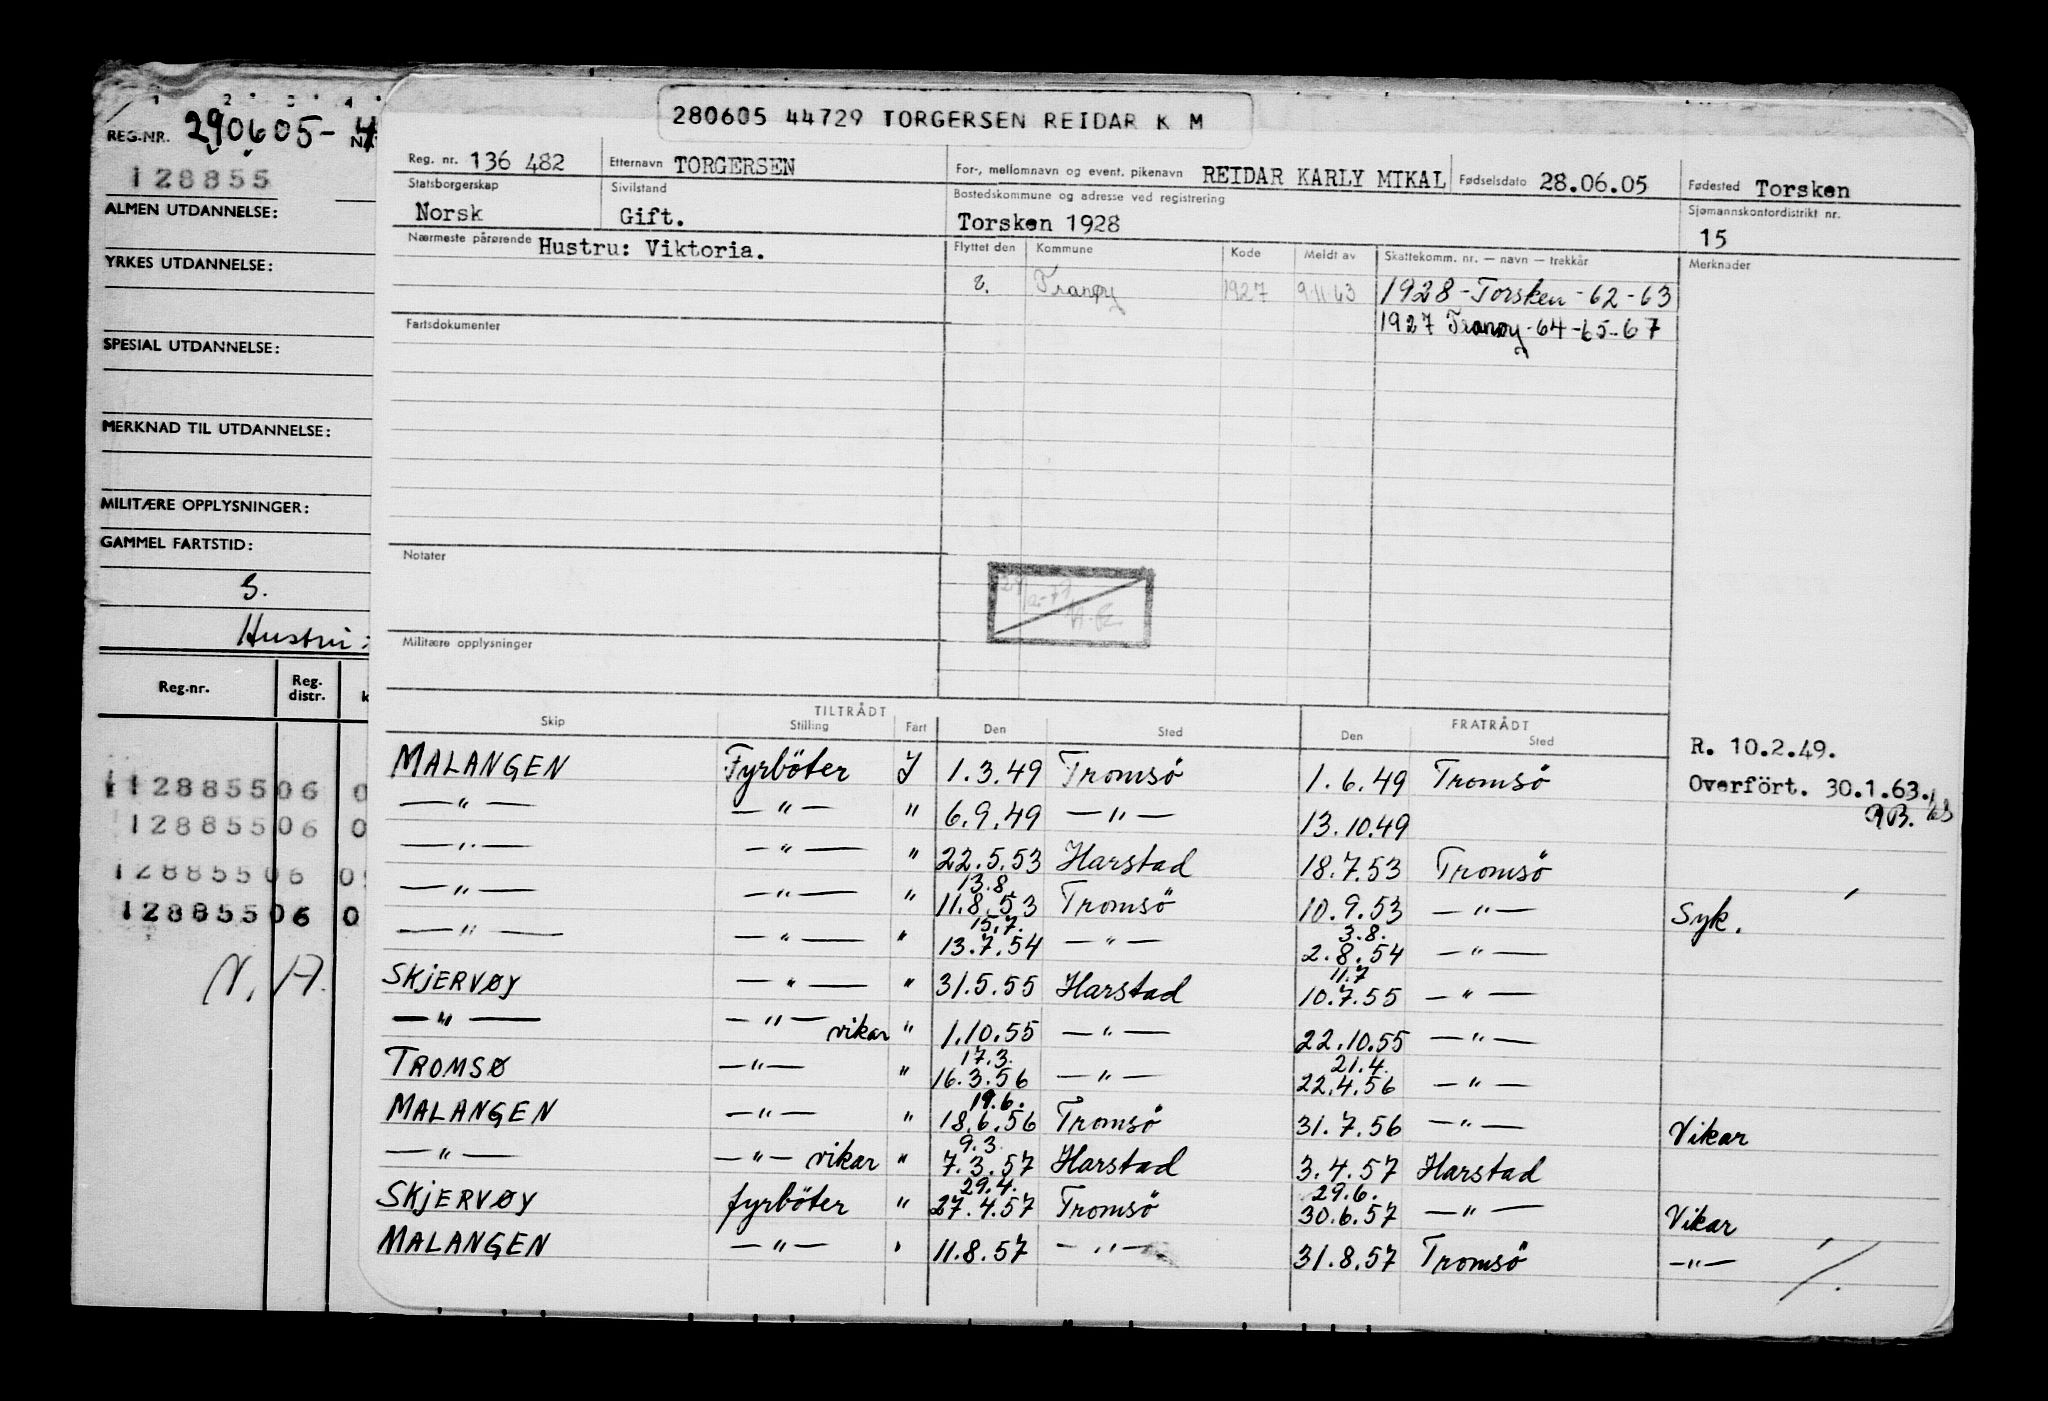 1 2 3 4
REG.-NR. 290605-4
128855
ALMEN UTDANNELSE:
YRKES UTDANNELSE:
SPESIAL UTDANNELSE:
MERKNAD TIL UTDANNELSE:
MILITÆRE OPPLYSNINGER:
GAMMEL FARTSTID:
G.
Hustru:
Reg.nr. Reg. distr. k
112885506 0
12885506 0
12885506 0
12885506 0
N.A.
280605 44729 TORGERSEN REIDAR K M
Reg. nr. 136 482 Etternavn TORGERSEN For-, mellomnavn og event. pikenavn REIDAR KARLY MIKAL Fødselsdato 28.06.05 Fødested Torsken
Statsborgerskap Norsk Sivilstand Gift. Bostedskommune og adresse ved registrering Torsken 1928 Sjømannskontordistrikt nr. 15
Nærmeste pårørende Hustru: Viktoria. Flyttet den Kommune Kode Meldt av Skattekomm. nr. — navn — trekkår Merknader
Tranøy 1927 9.11.63 1928 - Torsken - 62 - 63
1927 Tranøy - 64 - 65 - 67
Fartsdokumenter
Notater
Militære opplysninger
TILTRÅDT FRATRÅDT
Skip Stilling Fart Den Sted Den Sted
R. 10.2.49.
Overfört. 30.1.63.
MALANGEN Fyrböter I 1.3.49 Tromsö 1.6.49 Tromsö
—"— —"— " 6.9.49 —"— 13.10.49
—"— —"— " 22.5.53 Harstad 18.7.53 Tromsö
13.8.
—"— —"— " 11.8.53 Tromsö 10.9.53 —"— Syk.
15.7. 3.8.
—"— —"— " 13.7.54 —"— 2.8.54 —"—
11.7
SKJERVØY —"— " 31.5.55 Harstad 10.7.55 —"—
—"— —"— vikar " 1.10.55 —"— 22.10.55 —"—
17.3. 21.4.
TROMSØ —"— " 16.3.56 —"— 22.4.56 —"—
19.6.
MALANGEN —"— " 18.6.56 Tromsö 31.7.56 —"— Vikar
9.3.
—"— —"— vikar " 7.3.57 Harstad 3.4.57 Harstad
29.4. 29.6.
SKJERVØY fyrböter " 27.4.57 Tromsö 30.6.57 —"— Vikar
MALANGEN —"— " 11.8.57 —"— 31.8.57 Tromsö —"—